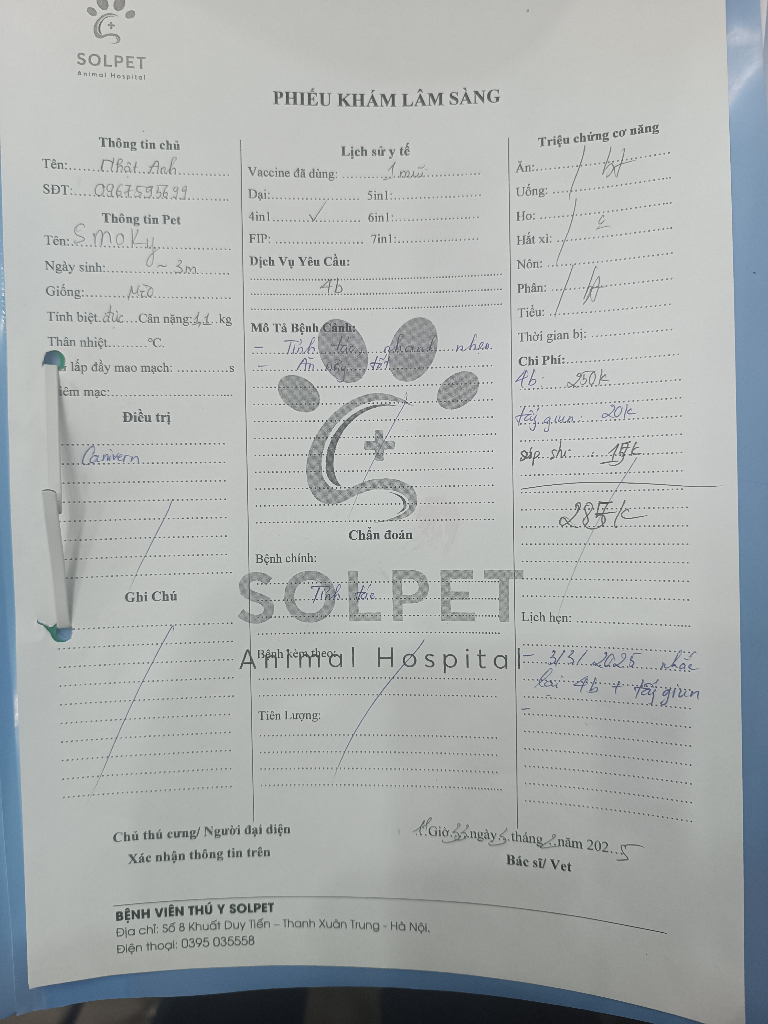 SOLPET
Animal Hospital
PHIẾU KHÁM LÂM SÀNG
Thông tin chủ
Tên: Nhật Anh
SĐT: 0967595699
Thông tin Pet
Tên: Smoky
Ngày sinh: ~ 3m
Giống: Mèo
Tính biệt đực Cân nặng: 1,1 kg
Thân nhiệt °C.
lấp đầy mao mạch: s
iêm mạc:
Điều trị
Canivern
Ghi Chú
Lịch sử y tế
Vaccine đã dùng: 1 mũi
Dại: 5in1:
4in1 ✓ 6in1:
FIP: 7in1:
Dịch Vụ Yêu Cầu:
4b
Mô Tả Bệnh Cảnh:
- Tỉnh táo, nhanh nhẹn.
- Ăn uống tốt
Chẩn đoán
Bệnh chính:
Tỉnh táo
SOLPET
Animal Hospital
Bệnh kèm theo:
Tiên Lượng:
Triệu chứng cơ năng
Ăn: bt
Uống:
Ho:
Hắt xì:
Nôn:
Phân: bt
Tiểu:
Thời gian bị:
Chi Phí:
4b: 250k
tẩy giun: 20k
sáp 15k
285k
Lịch hẹn:
- 3/3/2025 nhắc
lại 4b + tẩy giun
-
Chủ thú cưng/ Người đại diện
Xác nhận thông tin trên
Giờ ngày tháng năm 2025
Bác sĩ/ Vet
BỆNH VIÊN THÚ Y SOLPET
Địa chỉ: Số 8 Khuất Duy Tiến – Thanh Xuân Trung - Hà Nội.
Điện thoại: 0395 035558